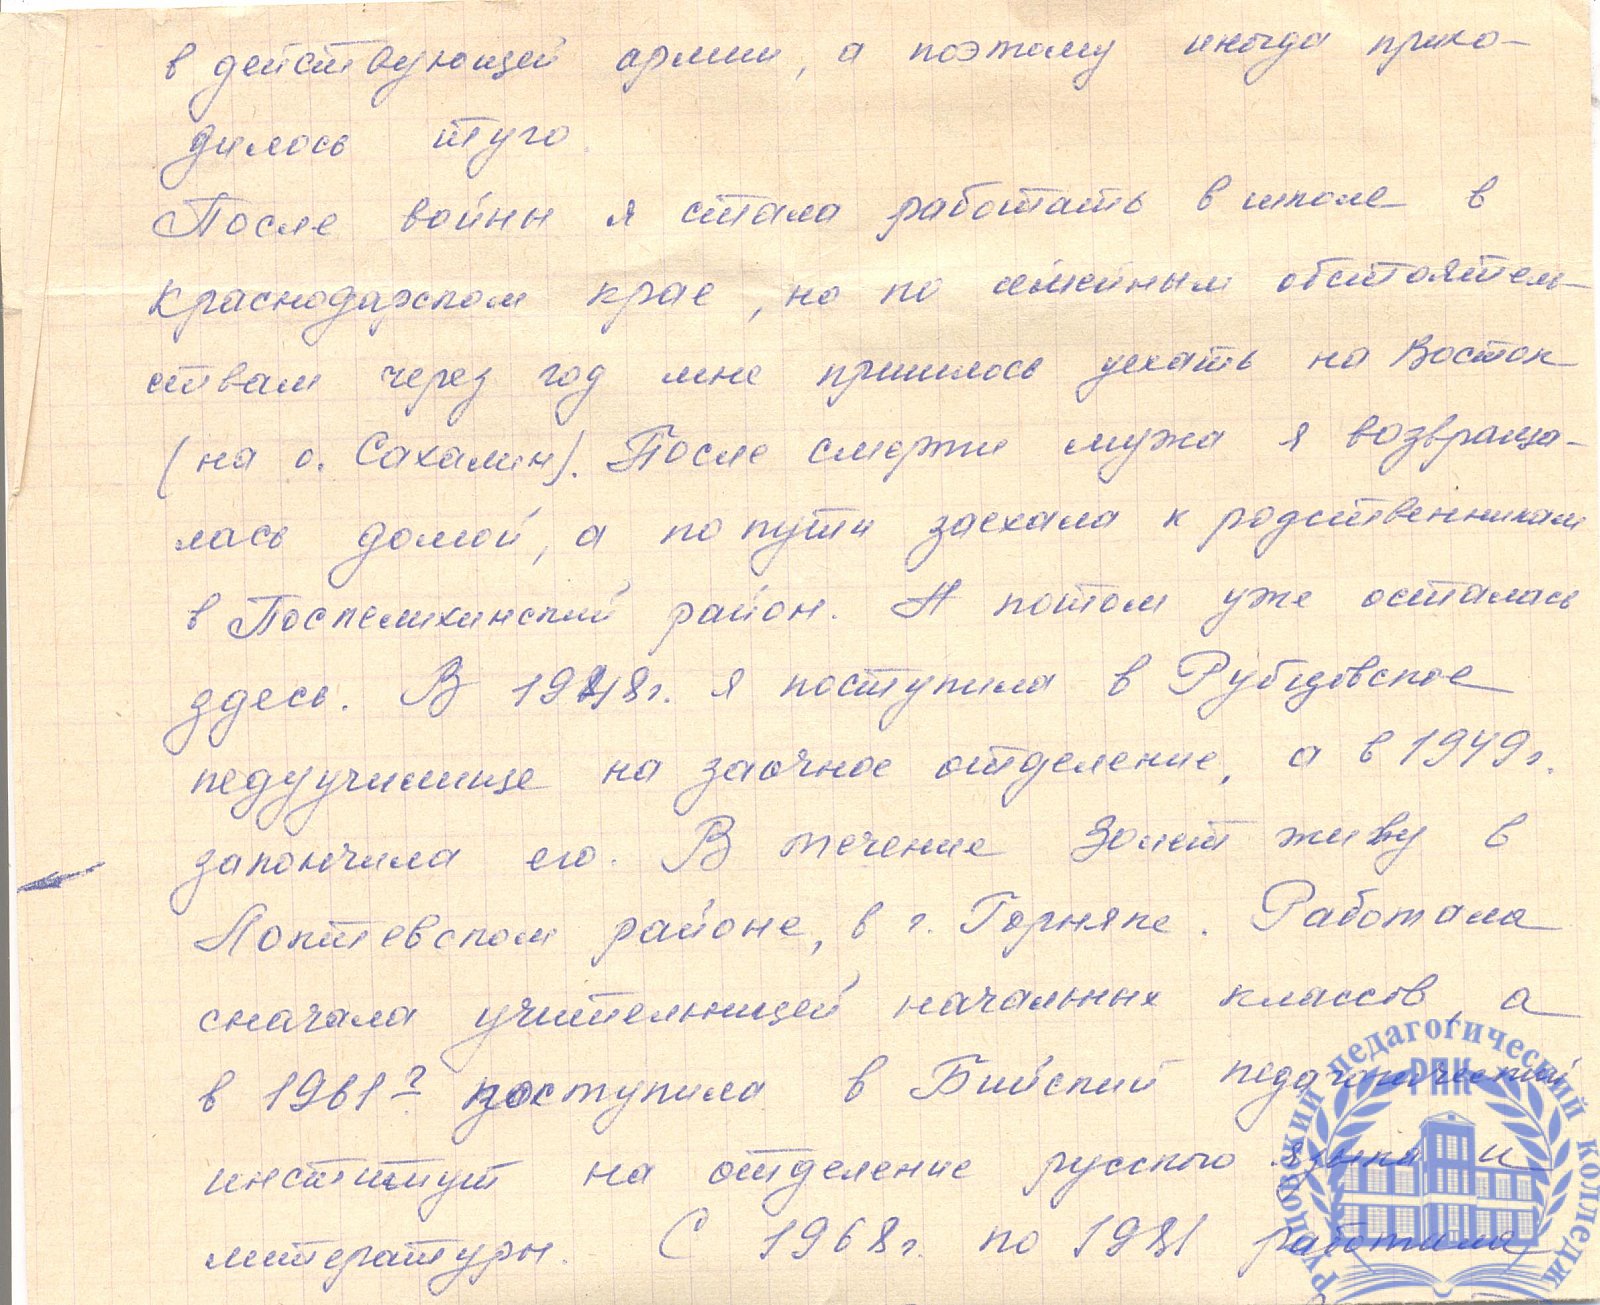 в действующей армии, а поэтому иногда прихо-
дилось туго.
После войны я стала работать в школе в
Краснодарском крае, но по семейным обстоятель-
ствам через год мне пришлось уехать на Восток
(на о. Сахалин). После смерти мужа я возвраща-
лась домой, а по пути заехала к родственникам
в Поспелихинский район. А потом уже осталась
здесь. В 1948г. я поступила в Рубцовское
педучилище на заочное отделение, а в 1949г.
закончила его. В течение 30 лет живу в
Локтевском районе, в г. Горняке. Работала
сначала учительницей начальных классов, а
в 1961? поступила в Бийский педагогический
институт на отделение русского языка и
литературы. С 1968г. по 1981 работала
РУБЦОВСКИЙ ПЕДАГОГИЧЕСКИЙ КОЛЛЕДЖ
РПК